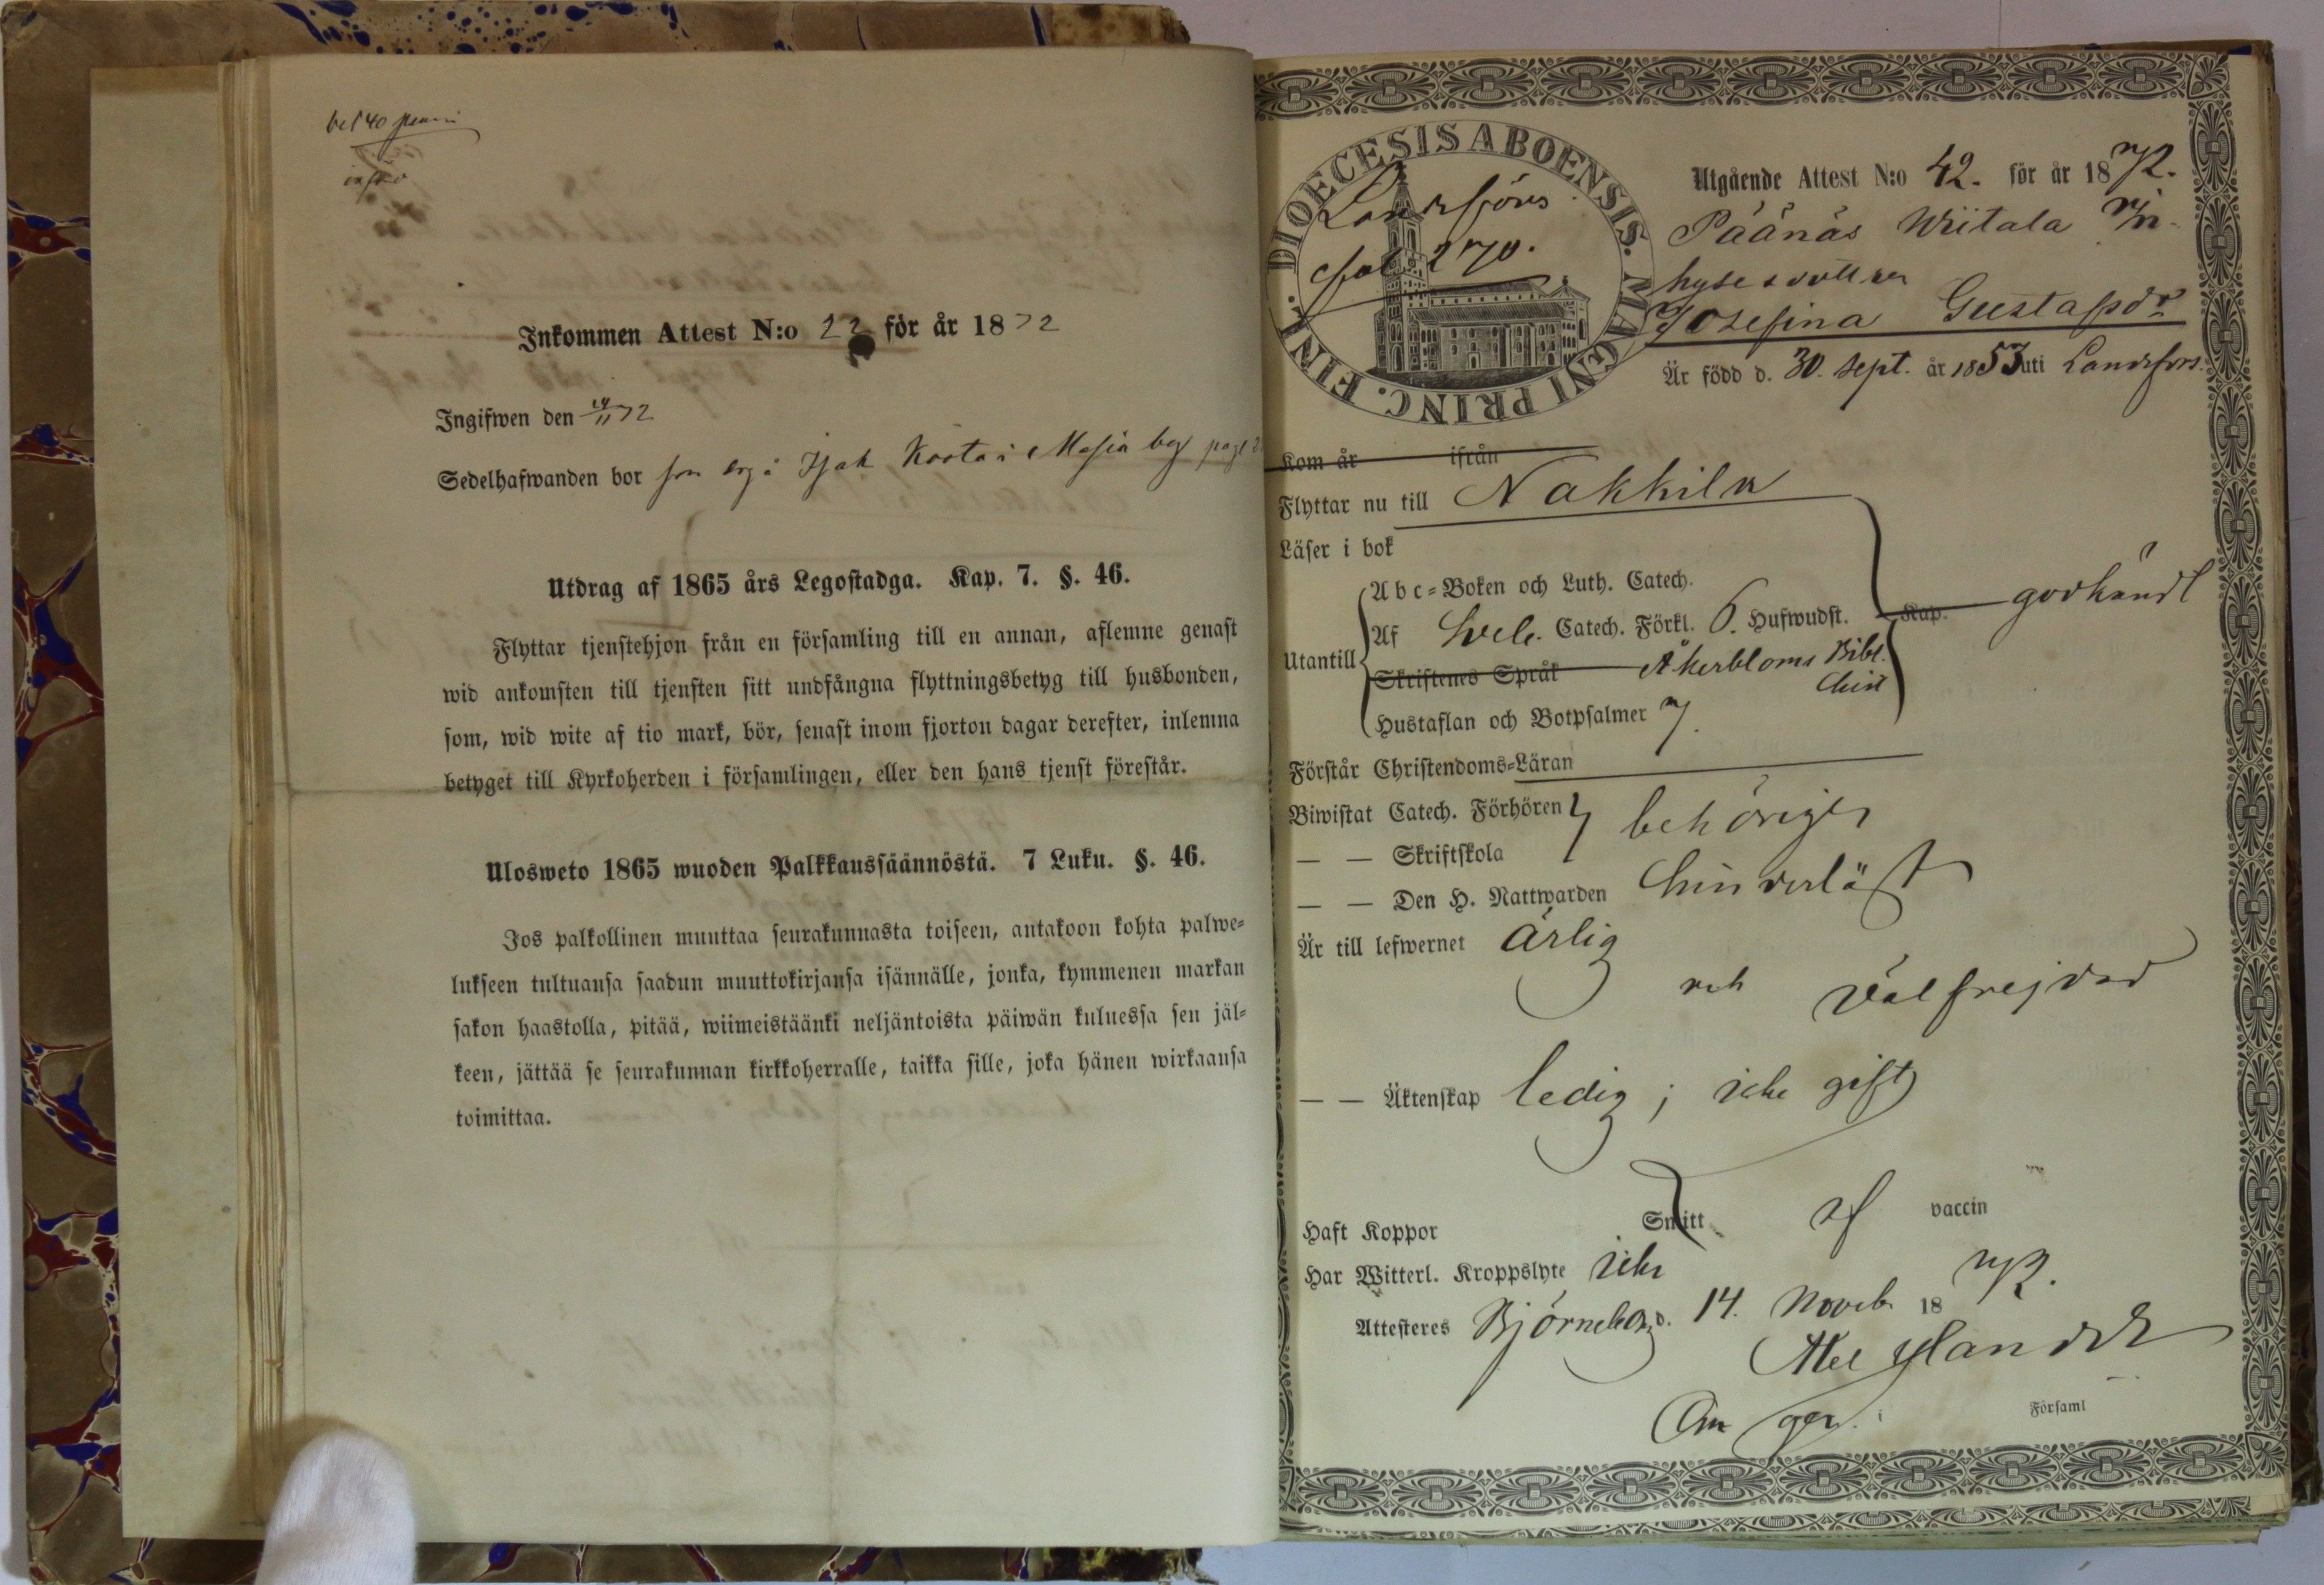 bet 40 penni
Inkommen Attest N:o 22 för år 1872
Ingifwen den 72
Sedelhafwanden bor i by pag
Utdrag af 1865 års Legostadga. Kap. 7. §. 46.
Flyttar tjenstehjon från en församling till en annan, aflemne genast
wid ankomsten till tjensten sitt undfångna flyttningsbetyg till husbonden,
som, wid wite af tio mark, bör, senast inom fjorton dagar derefter, inlemna
betyget till Kyrkoherden i församlingen, eller den hans tjenst förestår.
Ulosweto 1865 wuoden Palkkaussäännöstä. 7 Luku. §. 46.
Jos palkollinen muuttaa seurakunnasta toiseen, antakoon kohta palwe-
lukseen tultuansa saadun muuttokirjansa isännälle, jonka, kymmenen markan
sakon haastolla, pitää, wiimeistäänki neljäntoista päiwän kuluessa sen jäl-
keen, jättää se seurakunnan kirkkoherralle, taikka sille, joka hänen wirkaansa
toimittaa.
DIOECESIS ABOENSIS. MAGNI PRINC. FINL.
fol. 270.
Utgående Attest N:o 42. för år 1872.
Päänäs Wiitala
Josefina Gustafsdr
Är född d. 30. Sept. år 1853 uti Landsförs.
Kom år ifrån
Flyttar nu till Nakkila
Läser i bok
Utantill
Abc-Boken och Luth. Catech.
Af Sveb. Catech. Förkl. 6. Hufwudst. Kap. godkändt
Skriftenes Språk Åkerbloms Bibl.
Hustaflan och Botpsalmer 7.
Förstår Christendoms-Läran
Biwistat Catech. Förhören behörigen
— — Skriftskola
— — Den H. Nattwarden
Är till lefwernet ärlig
och välfrejdad
— — Äktenskap ledig; icke gift
Haft Koppor Snitt af vaccin
Har Witterl. Kroppslyte icke
Attesteres Björneborg d. 14. Novb. 1872.
i Församl